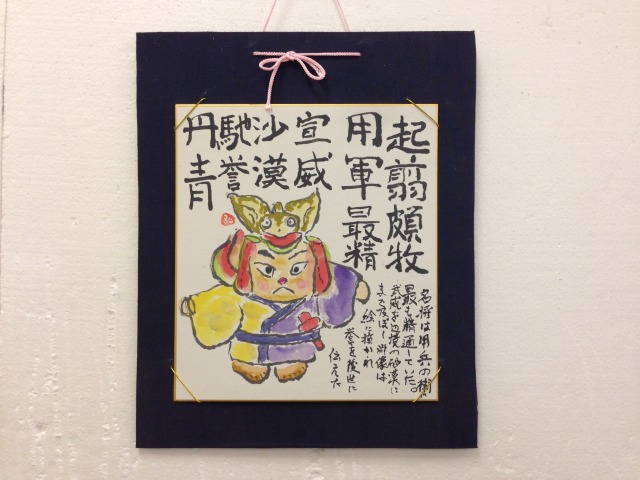 起翦頗牧
用軍最精
宣威
沙漠
馳誉
丹青
名将は用兵の術に
最も精通していた。
武威を辺境の砂漠に
まで及ぼし肖像は
絵に描かれ
誉を後世に
伝えた